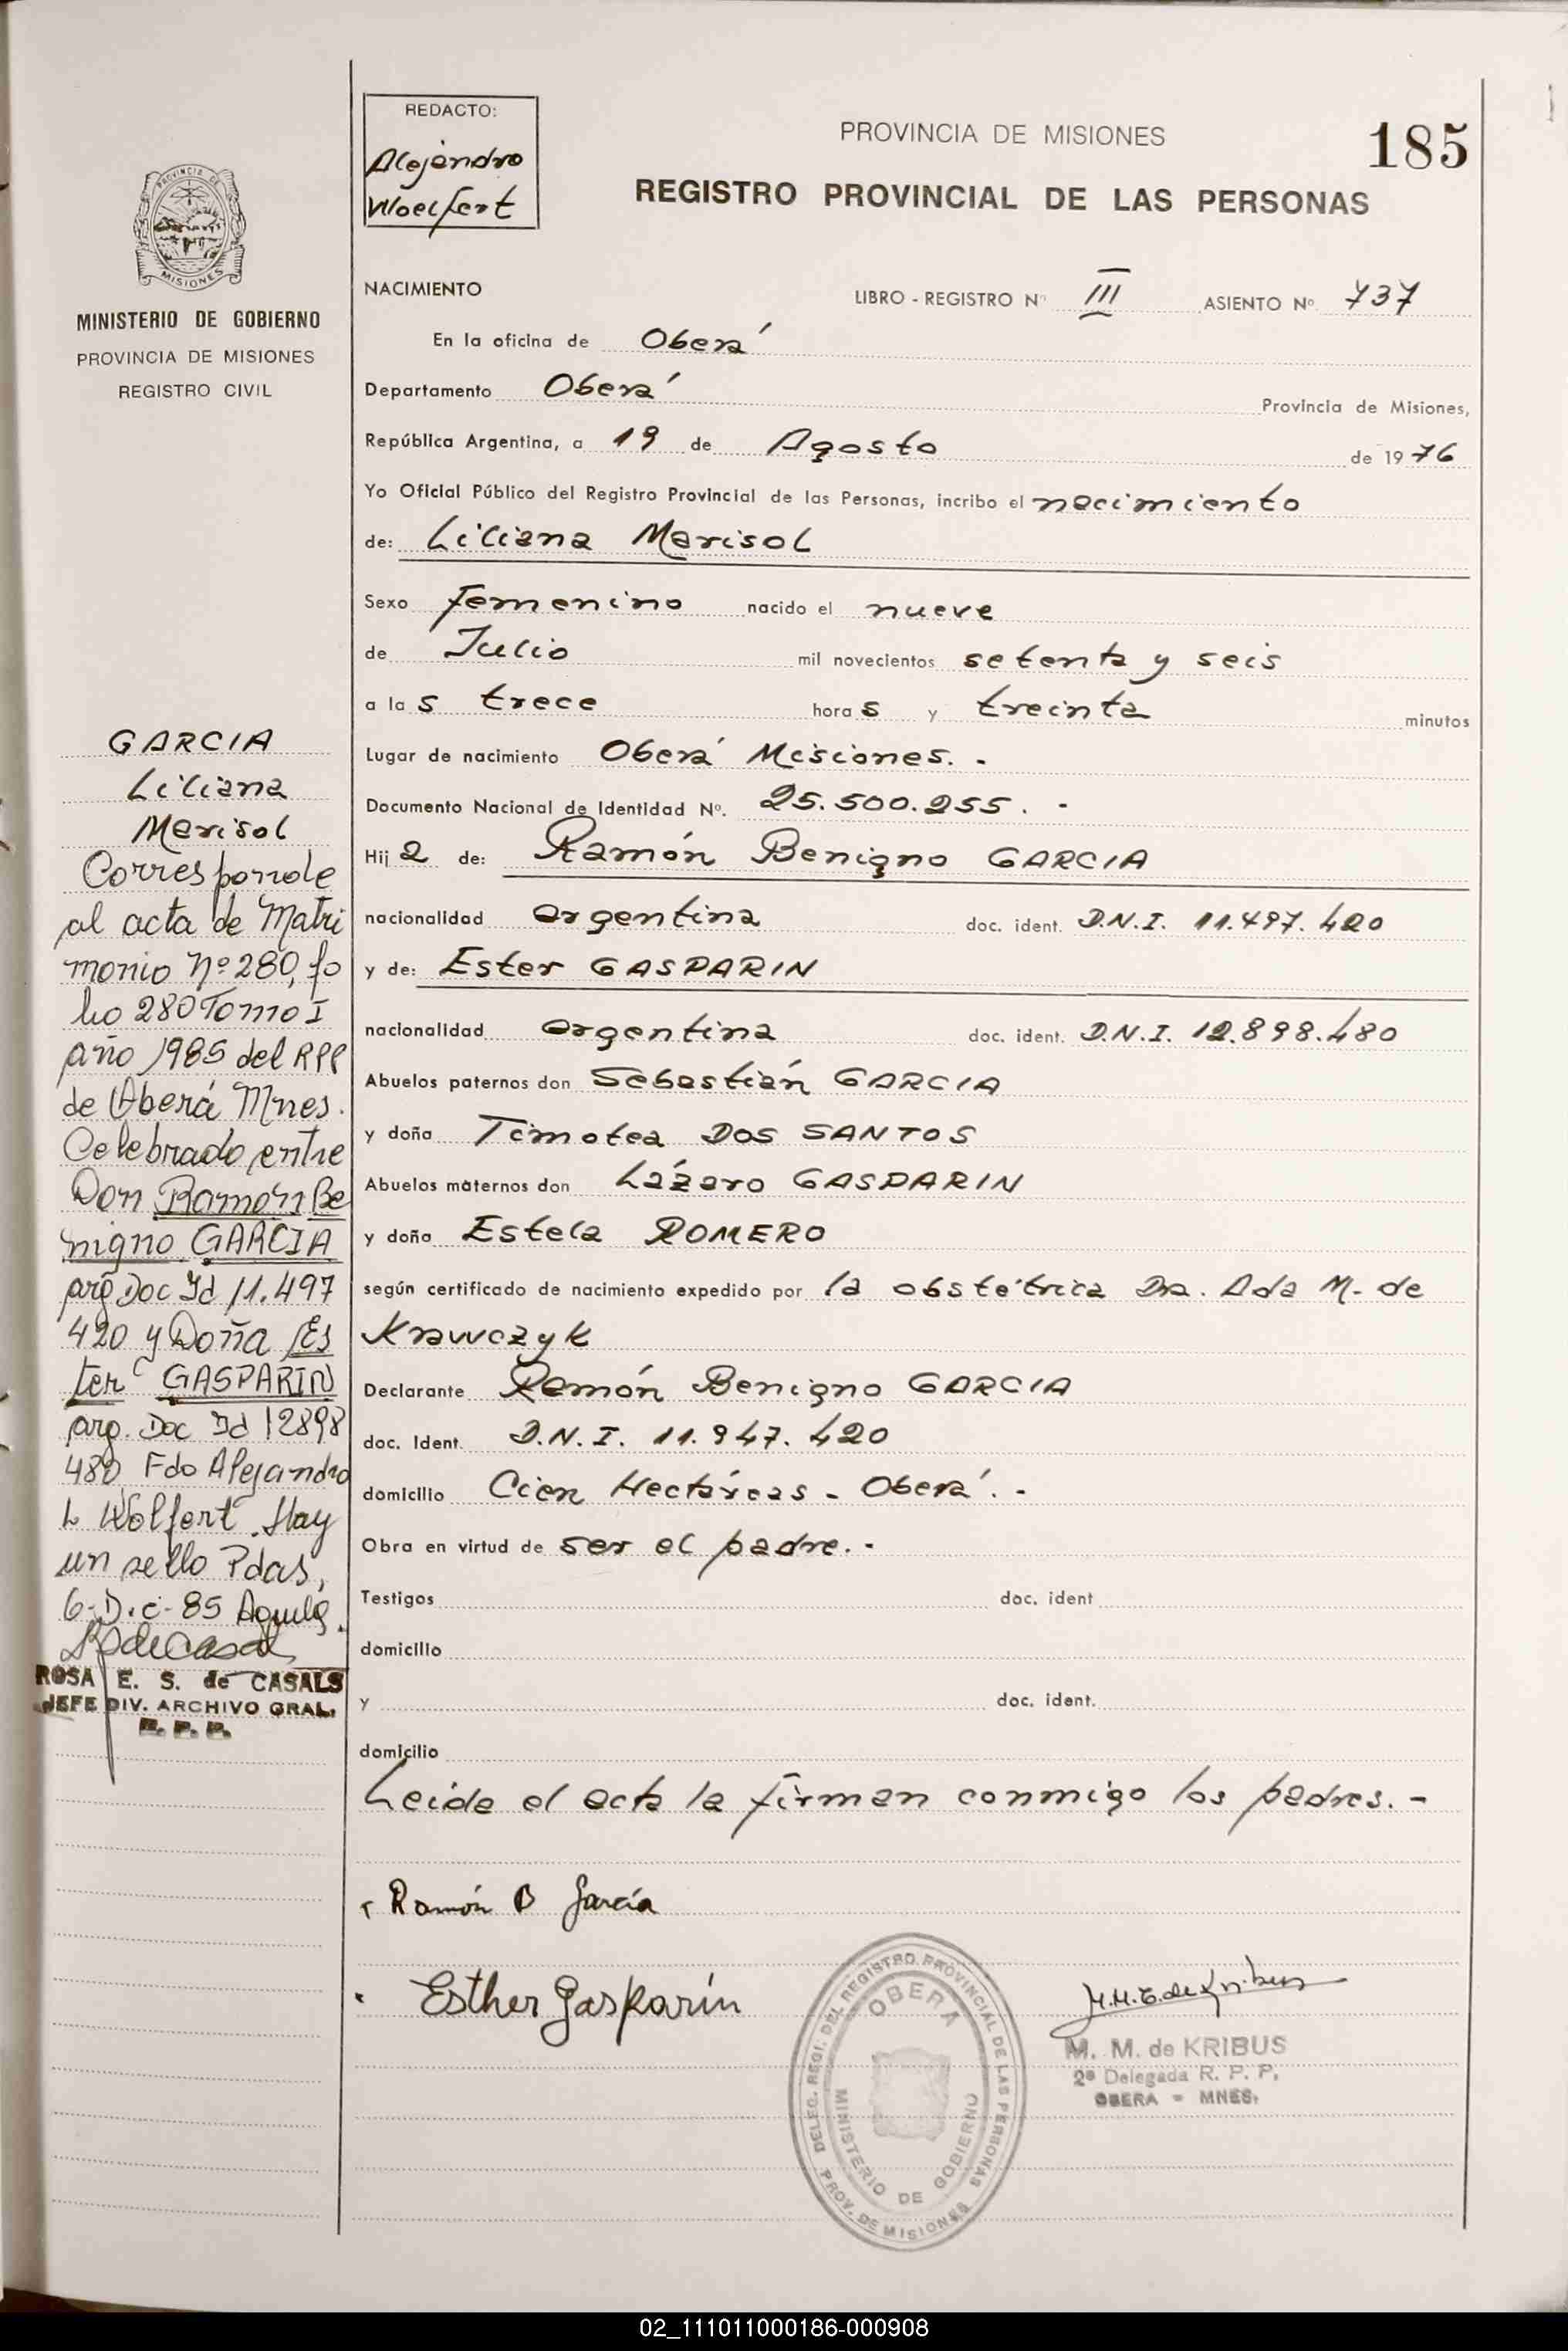 REDACTO:
Alejandro
Woelfert
PROVINCIA DE MISIONES
185
REGISTRO PROVINCIAL DE LAS PERSONAS
PROVINCIA DE
MISIONES
MINISTERIO DE GOBIERNO
PROVINCIA DE MISIONES
REGISTRO CIVIL
NACIMIENTO LIBRO - REGISTRO Nº III ASIENTO Nº 737
En la oficina de Oberá
Departamento Oberá Provincia de Misiones,
República Argentina, a 19 de Agosto de 1976
Yo Oficial Público del Registro Provincial de las Personas, incribo el nacimiento
de: Liliana Marisol
Sexo femenino nacido el nueve
de Julio mil novecientos setenta y seis
a las trece horas y treinta minutos
Lugar de nacimiento Oberá Misiones. -
Documento Nacional de Identidad Nº. 25.500.255. -
Hija de: Ramón Benigno GARCIA
nacionalidad argentina doc. ident. D.N.I. 11.497.420
y de: Ester GASPARIN
nacionalidad argentina doc. ident. D.N.I. 12.898.480
Abuelos paternos don Sebastián GARCIA
y doña Timotea DOS SANTOS
Abuelos maternos don Lázaro GASPARIN
y doña Estela ROMERO
según certificado de nacimiento expedido por la obstétrica Dra. Ada M. de
Krawczyk
Declarante Ramón Benigno GARCIA
doc. Ident. D.N.I. 11.947.420
domicilio Cien Hectáreas - Oberá. -
Obra en virtud de ser el padre. -
Testigos doc. ident
domicilio
y doc. ident.
domicilio
Leida el acta la firman conmigo los padres. -
Ramón B García
Esther Gasparín
M.M.E. de Kribus
M. M. de KRIBUS
2ª Delegada R. P. P.
OBERA - MNES.
DELEG. REGI. DEL REGISTRO PROVINCIAL DE LAS PERSONAS
PROV. DE MISIONES
OBERA
MINISTERIO DE GOBIERNO
GARCIA
Liliana
Marisol
Corresponde
al acta de Matri
monio Nº 280, fo
lio 280 Tomo I
año 1985 del RPP
de Oberá Mnes.
Celebrado entre
Don Ramón Be
nigno GARCIA
arg Doc Id 11.497
420 y Doña Es
ter GASPARIN
arg. Doc Id 12898
480 Fdo Alejandro
L Wolfert. Hay
un sello Pdas,
6-Dic-85
ROSA E. S. de CASALS
JEFE DIV. ARCHIVO GRAL.
R. P. P.
02_111011000186-000908